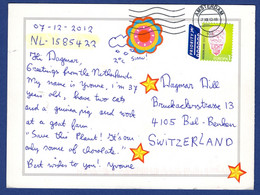 07-12-2012
NL-1585422
Hi Dagmar,
Greetings from the Netherlands
My name is Yvonne, i'm 37
years old, have two cats
and a guinea pig, and work
at a goat farm.
"Save this Planet! It's our
only source of chocolate."
Best wishes to you! Yvonne
2°C
Snow!
AMSTERDAM
PRIORITY
Dagmar
Bruderholzstrasse 13
4105 Biel-Benken
SWITZERLAND